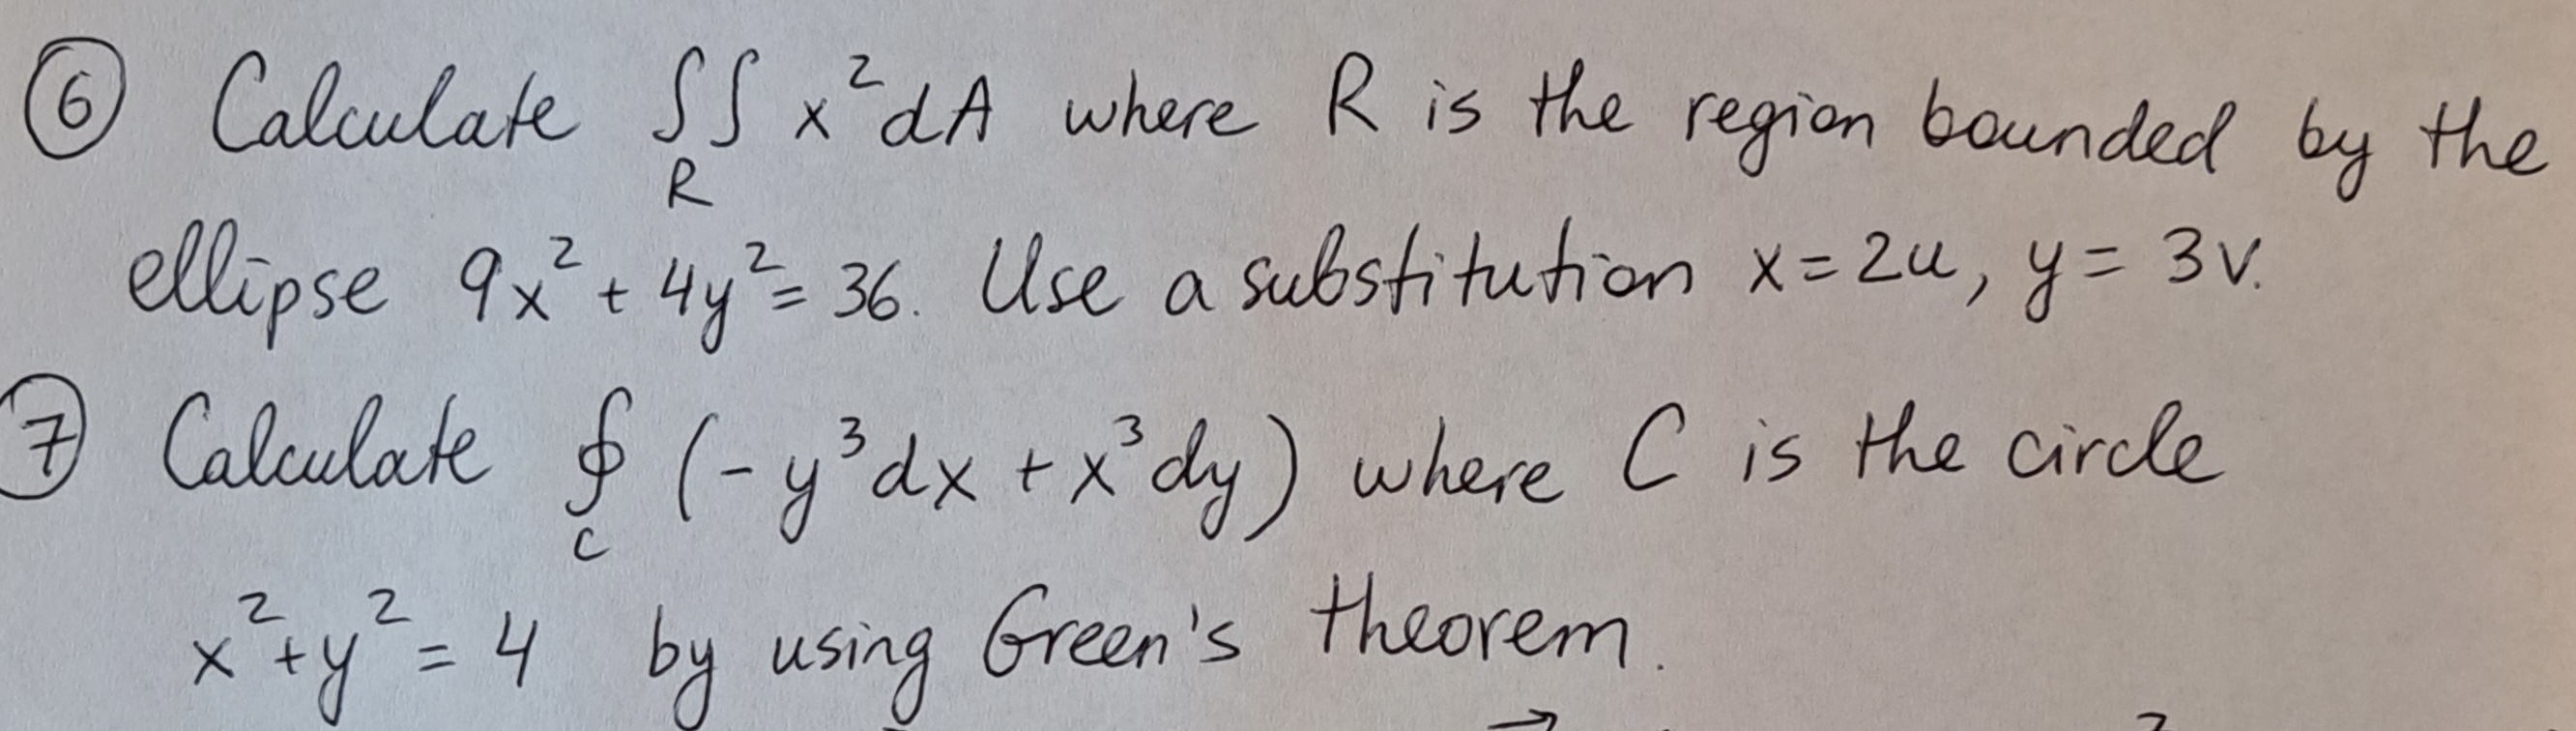 ⑥ Calculate ∬_R x²dA where R is the region bounded by the
ellipse 9x² + 4y² = 36. Use a substitution x = 2u, y = 3v.
⑦ Calculate ∮_C (-y³dx + x³dy) where C is the circle
x² + y² = 4 by using Green's theorem.